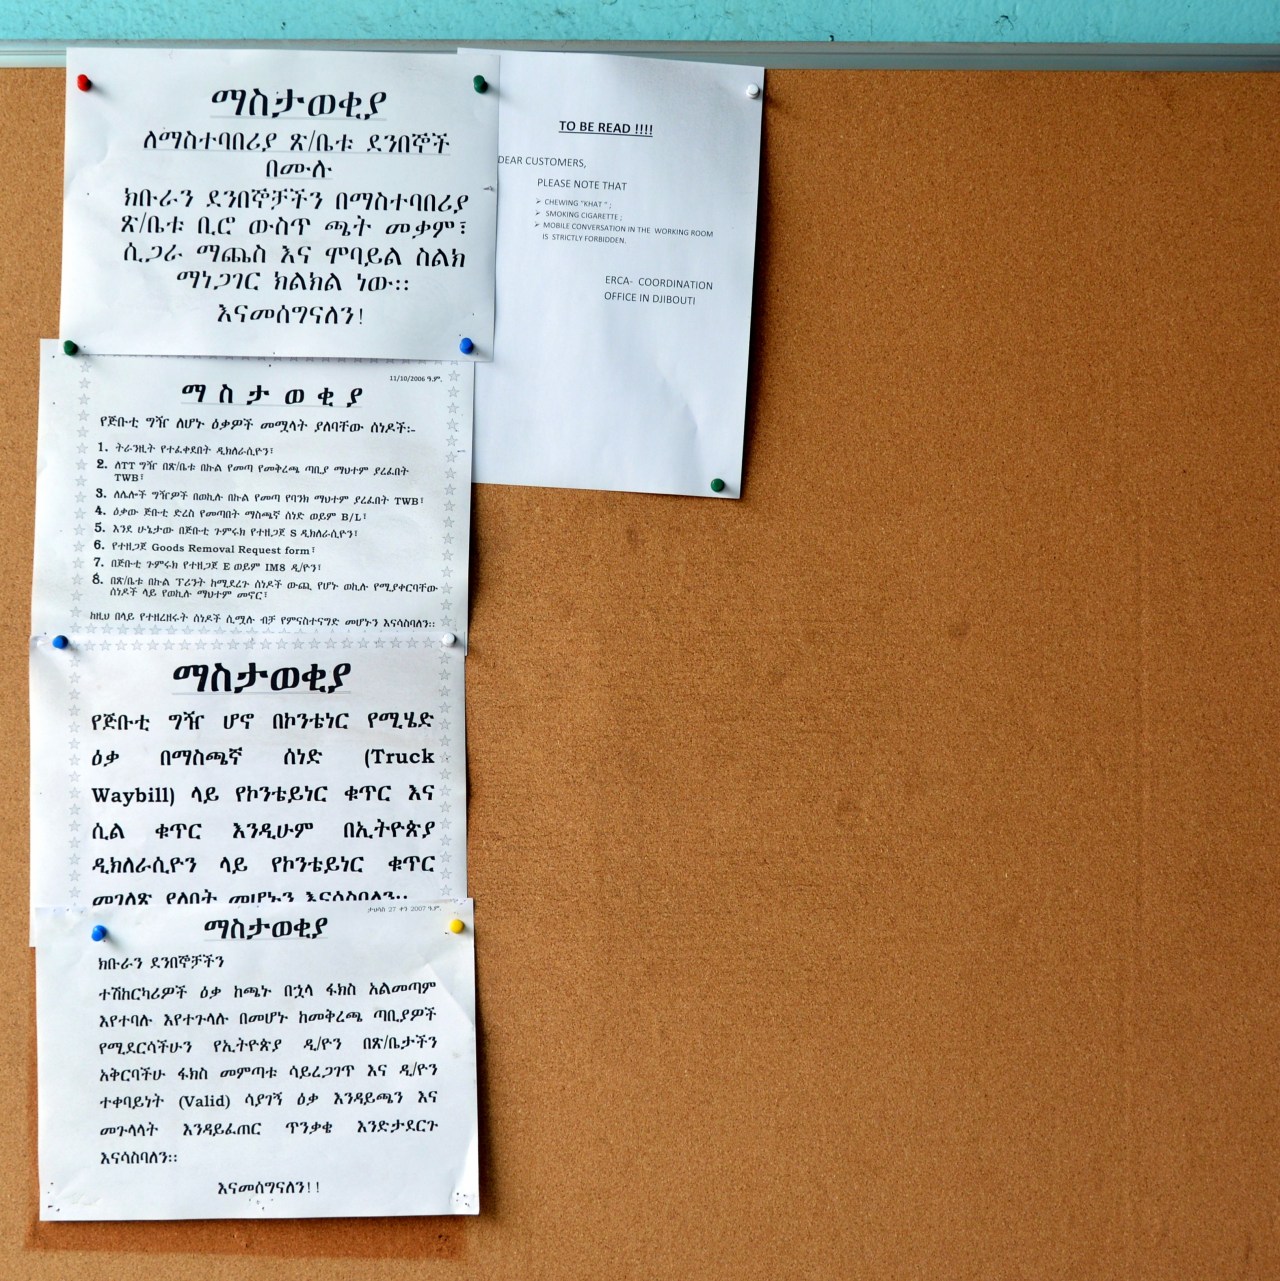 ማስታወቂያ
ለማስተባበሪያ ጽ/ቤቱ ደንበኞች
በሙሉ
ክቡራን ደንበኞቻችን በማስተባበሪያ
ጽ/ቤቱ ቢሮ ውስጥ ጫት መቃም፣
ሲጋራ ማጨስ እና ሞባይል ስልክ
ማነጋገር ክልክል ነው፡፡
እናመሰግናለን!
TO BE READ !!!!
DEAR CUSTOMERS,
PLEASE NOTE THAT
➢ CHEWING "KHAT" ;
➢ SMOKING CIGARETTE ;
➢ MOBILE CONVERSATION IN THE WORKING ROOM
IS STRICTLY FORBIDDEN.
ERCA- COORDINATION
OFFICE IN DJIBOUTI
11/10/2006 ዓ.ም.
ማ ስ ታ ወ ቂ ያ
የጅቡቲ ግዥ ለሆኑ ዕቃዎች መሟላት ያለባቸው ሰነዶች፡-
1. ትራንዚት የተፈቀደበት ዲክለራሲዮን፣
2. ለTT ግዥ በጽ/ቤቱ በኩል የመጣ የመቅረጫ ጣቢያ ማህተም ያረፈበት
TWB፣
3. ለሌሎች ግዥዎች በወኪሉ በኩል የመጣ የባንክ ማህተም ያረፈበት TWB፣
4. ዕቃው ጅቡቲ ድረስ የመጣበት ማስጫኛ ሰነድ ወይም B/L፣
5. እንደ ሁኔታው በጅቡቲ ጉምሩክ የተዘጋጀ S ዲክለራሲዮን፣
6. የተዘጋጀ Goods Removal Request form፣
7. በጅቡቲ ጉምሩክ የተዘጋጀ E ወይም IM8 ዲ/ዮን፣
8. በጽ/ቤቱ በኩል ፕሪንት ከሚደረጉ ሰነዶች ውጪ የሆኑ ወኪሉ የሚያቀርባቸው
ሰነዶች ላይ የወኪሉ ማህተም መኖር፣
ከዚህ በላይ የተዘረዘሩት ሰነዶች ሲሟሉ ብቻ የምናስተናግድ መሆኑን እናሳስባለን፡፡
ማስታወቂያ
የጅቡቲ ግዥ ሆኖ በኮንቴነር የሚሄድ
ዕቃ በማስጫኛ ሰነድ (Truck
Waybill) ላይ የኮንቴይነር ቁጥር እና
ሲል ቁጥር እንዲሁም በኢትዮጵያ
ዲክለራሲዮን ላይ የኮንቴይነር ቁጥር
መገለጽ ያለበት መሆኑን እናሳስባለን፡፡
ታህሳስ 27 ቀን 2007 ዓ.ም.
ማስታወቂያ
ክቡራን ደንበኞቻችን
ተሽከርካሪዎች ዕቃ ከጫኑ በኋላ ፋክስ አልመጣም
እየተባሉ እየተጉላሉ በመሆኑ ከመቅረጫ ጣቢያዎች
የሚደርሳችሁን የኢትዮጵያ ዲ/ዮን በጽ/ቤታችን
አቅርባችሁ ፋክስ መምጣቱ ሳይረጋገጥ እና ዲ/ዮን
ተቀባይነት (Valid) ሳያገኝ ዕቃ እንዳይጫን እና
መጉላላት እንዳይፈጠር ጥንቃቄ እንድታደርጉ
እናሳስባለን፡፡
እናመሰግናለን!!